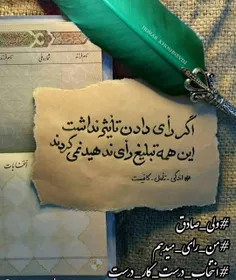 اگر رأی دادن تأثیر نداشت
این همه تبلیغ رأی ندهید نمی‌کردند
#اندکی_تأمل_کافیست
#ولی_صادق
#من_رای_میدهم
#انتخاب_درست_کار_درست